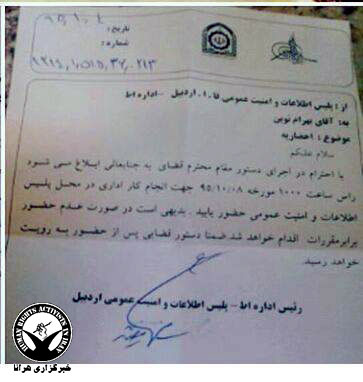 تاریخ: ۹۵/۱۰/۴
شماره:
از: پلیس اطلاعات و امنیت عمومی فا.ا. اردبیل - اداره اط
به: آقای بهرام نوبی
موضوع: احضاریه
سلام علیکم
با احترام در اجرای دستور مقام محترم قضایی به جنابعالی ابلاغ می شود
راس ساعت ۱۰۰۰ مورخه ۹۵/۱۰/۰۸ جهت انجام کار اداری در محل پلیس
اطلاعات و امنیت عمومی حضور یابید. بدیهی است در صورت عدم حضور
برابر مقررات اقدام خواهد شد. ضمنا دستور قضایی پس از حضور به رویت
خواهد رسید.
رئیس اداره اط - پلیس اطلاعات و امنیت عمومی اردبیل
HUMAN RIGHTS ACTIVISTS IN IRAN
خبرگزاری هرانا